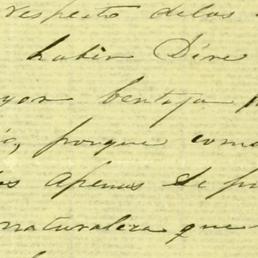 respecto delos
haber Dire
yor bentaja
porque como
os apenas se pu
naturaleza que